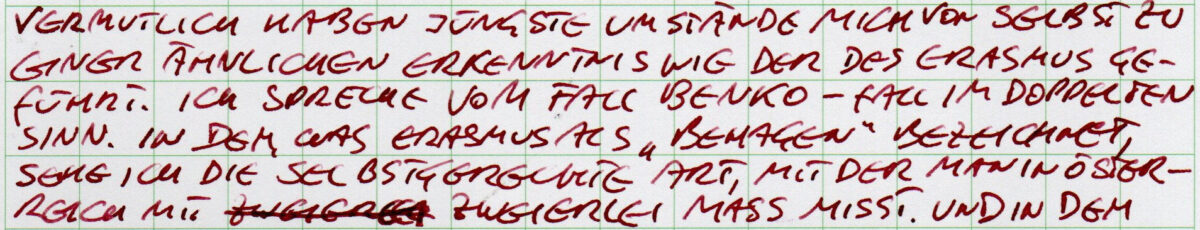 VERMUTLICH HABEN JÜNGSTE UMSTÄNDE MICH VON SELBST ZU
EINER ÄHNLICHEN ERKENNTNIS WIE DER DES ERASMUS GE-
FÜHRT. ICH SPRECHE VOM FALL BENKO – FALL IM DOPPELTEN
SINN. IN DEM, WAS ERASMUS ALS „BEHAGEN“ BEZEICHNET,
SEHE ICH DIE SELBSTGERECHTE ART, MIT DER MAN IN ÖSTER-
REICH MIT ZWEIERLEI MASS MISST. UND IN DEM